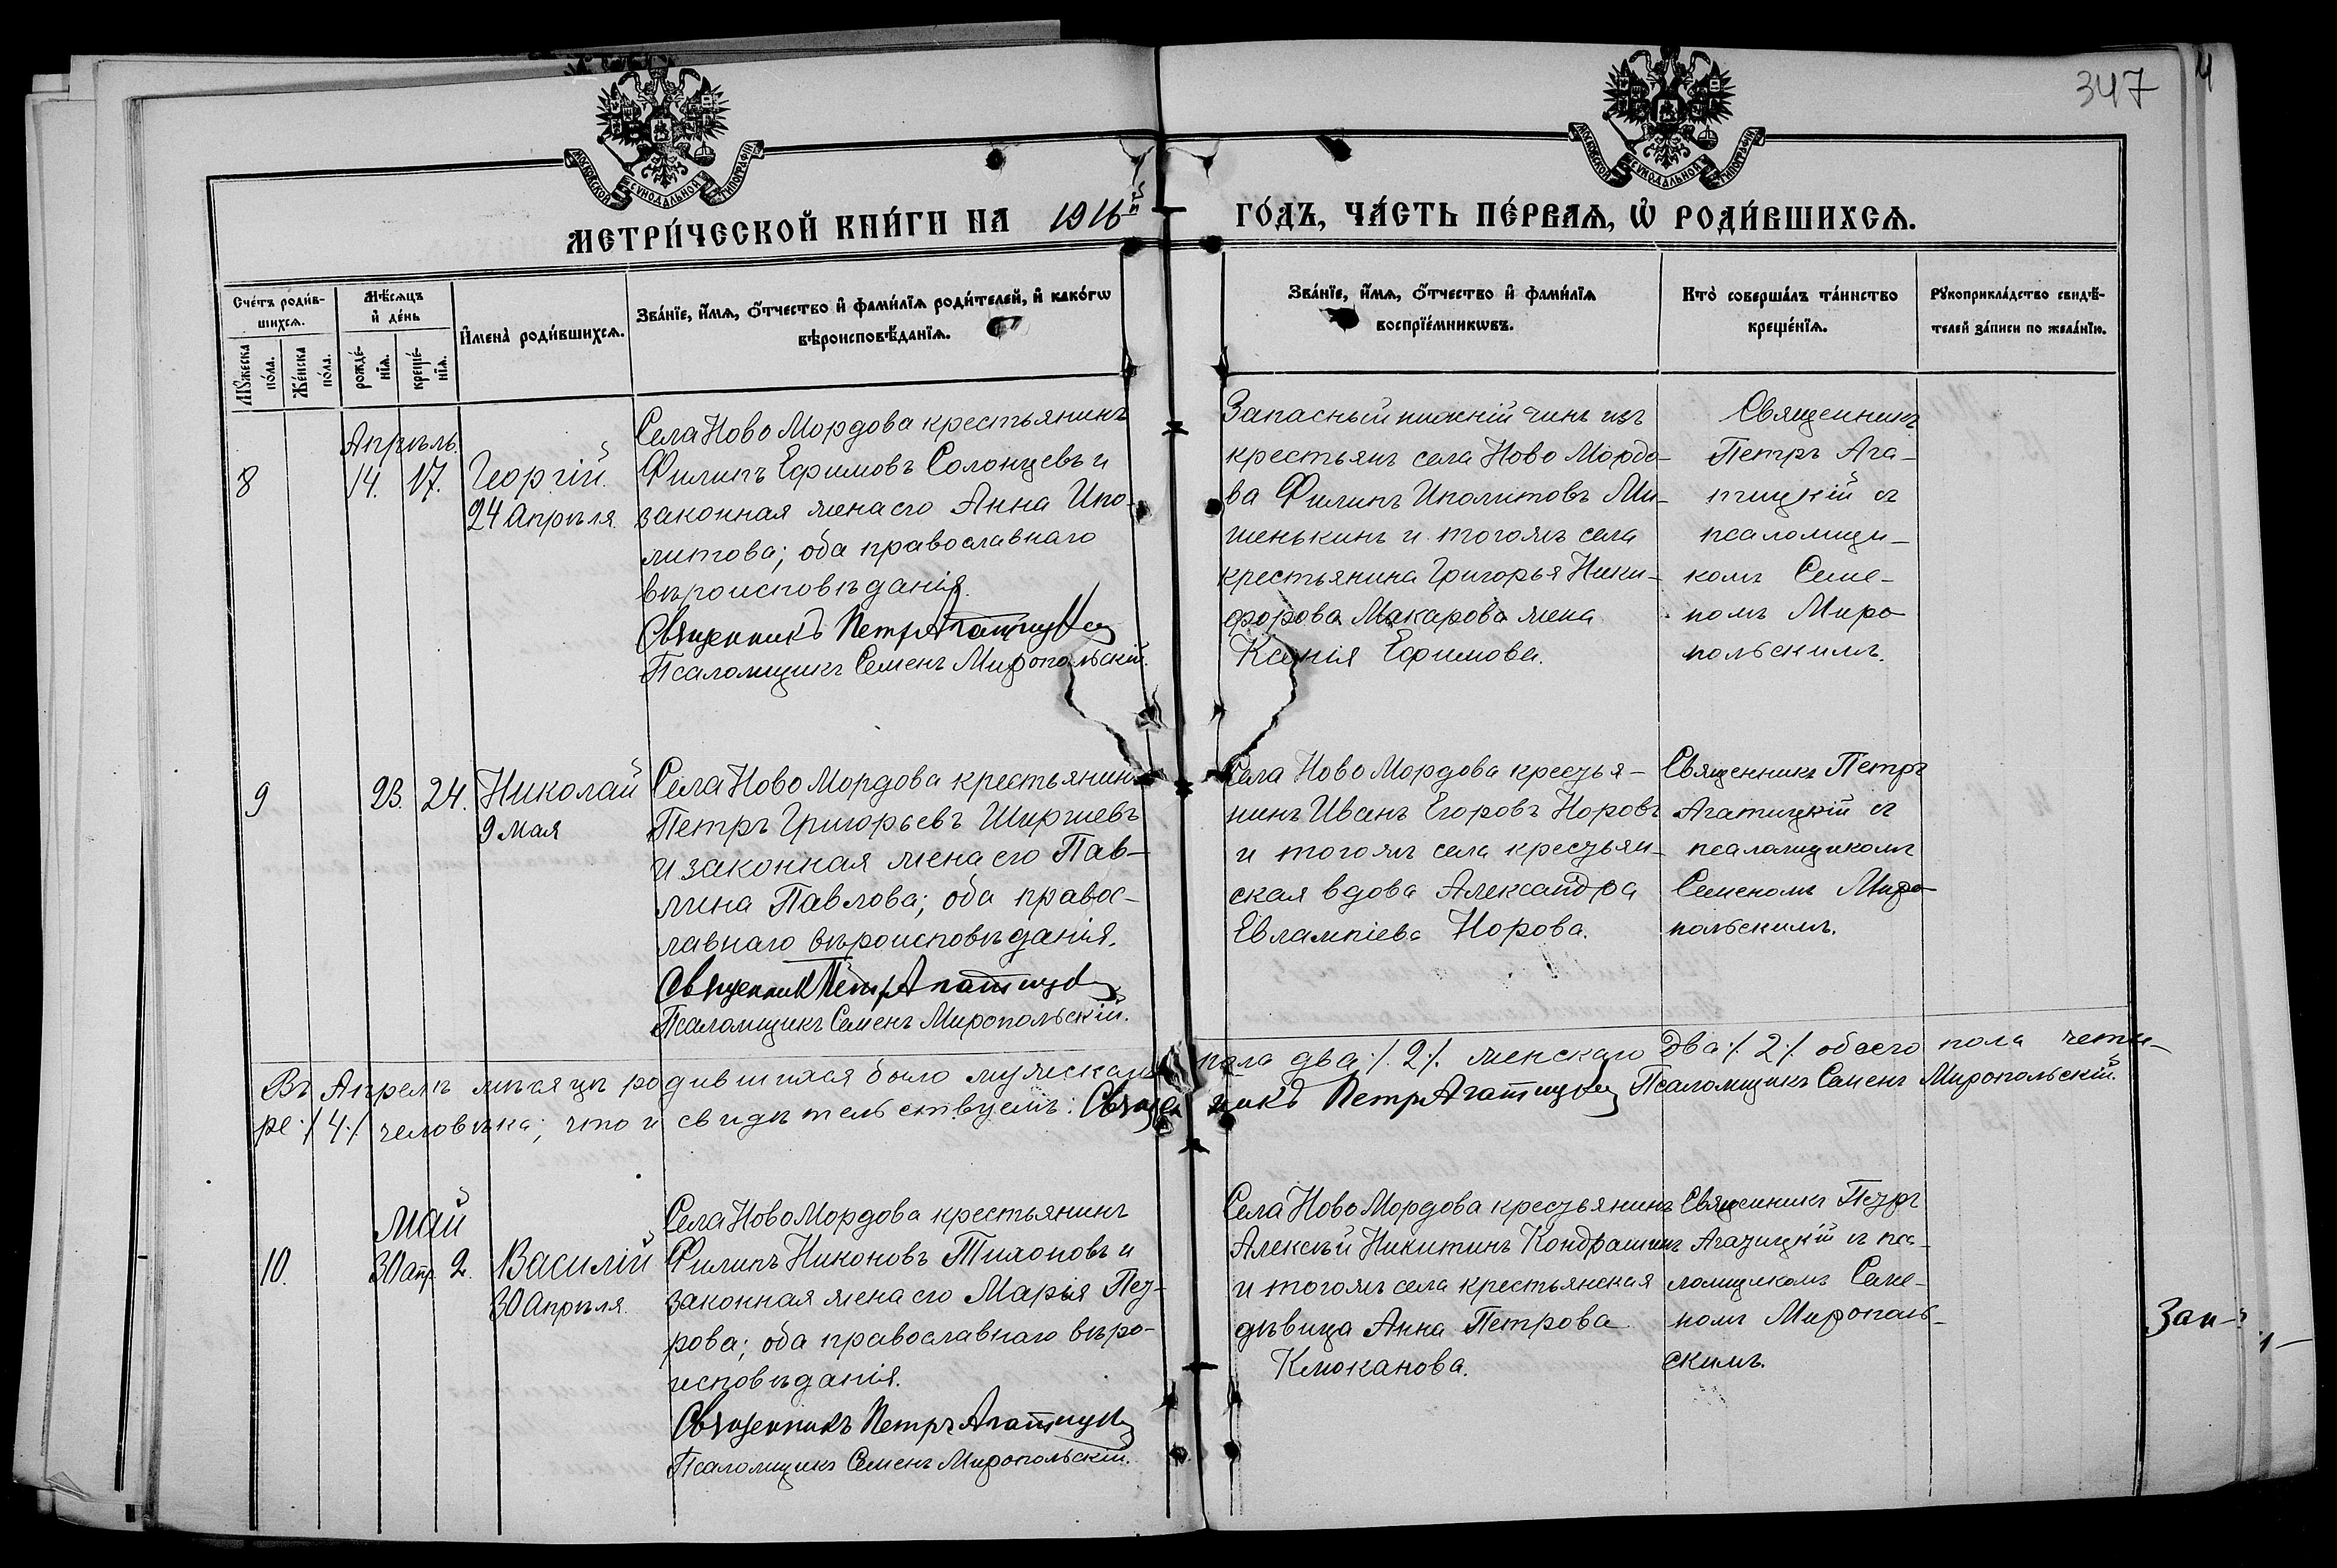 347
4
МОСКОВСКОЙ СУНОДАЛЬНОЙ ТИПОГРАФІИ
МОСКОВСКОЙ СУНОДАЛЬНОЙ ТИПОГРАФІИ
МЕТРИ́ЧЕСКОЙ КНИ́ГИ НА 1916й ГО́ДЪ, ЧА́СТЬ ПЕ́РВАѦ, Ѡ҆ РОДИ́ВШИХСѦ.
Сче́тъ роди́в-
шихсѧ.
Мꙋжеска по́ла.
Же́нска по́ла.
Мѣ́сѧцъ
и҆ де́нь
рожде́-
нїѧ.
креще́-
нїѧ.
И҆мена̀ роди́вшихсѧ.
Зва́нїе, и҆́мѧ, ѻ҆́тчество и҆ фами́лїѧ роди́телей, и҆ како́гѡ
вѣроисповѣ́данїѧ.
Зва́нїе, и҆́мѧ, ѻ҆́тчество и҆ фами́лїѧ
воспрїе́мникѡвъ.
Кто̀ соверша́лъ та́инство
креще́нїѧ.
Рꙋкоприкла́дство свидѣ́-
телей за́писи по жела́нїю.
Апрѣль.
8
14.
17.
Георгій.
24 Апрѣля.
Села Ново Мордова крестьянинъ
Филипъ Ефимовъ Солонцевъ и
законная жена его Анна Ипо-
литова; оба православнаго
вѣроисповѣданія.
Священникъ Петръ Агатицкій
Псаломщикъ Семенъ Миропольскій.
Запасный нижній чинъ изъ
крестьянъ села Ново Мордо-
ва Филипъ Иполитовъ Ми-
шенькинъ и тогожъ села
крестьянина Григорья Ники-
форова Макарова жена
Ксенія Ефимова.
Священникъ
Петръ Ага-
тицкій съ
псаломщи-
комъ Семе-
номъ Миро
польскимъ.
9
23.
24.
Николай
9 Мая
Села Ново Мордова крестьянинъ
Петръ Григорьевъ Ширшевъ
и законная жена его Пав-
лина Павлова; оба правос-
лавнаго вѣроисповѣданія.
Священникъ Петръ Агатицкій
Псаломщикъ Семенъ Миропольскій.
Села Ново Мордова крестья-
нинъ Иванъ Егоровъ Норовъ
и тогожъ села крестьян-
ская вдова Александра
Евлампіева Норова.
Священникъ Петръ
Агатицкій съ
псаломщикомъ
Семеномъ Миро
польскимъ.
Въ Апрелѣ мѣсяцѣ родившихся было мужскаго пола два /. 2 ./. женскаго два /. 2 ./. обоего пола четы-
ре ./ 4 ./. человѣка; что и свидѣтельствуемъ: Священникъ Петръ Агатицкій Псаломщикъ Семенъ Миропольскій.
Май
10.
30 апр.
2.
Василій
30 Апрѣля.
Села Ново Мордова крестьянинъ
Филипъ Никоновъ Тихоновъ и
законная жена его Марья Пет-
рова; оба православнаго вѣро-
исповѣданія.
Священникъ Петръ Агатицкій
Псаломщикъ Семенъ Миропольскій.
Села Ново Мордова крестьянинъ
Алексѣй Никитинъ Кондрашинъ
и тогожъ села крестьянская
дѣвица Анна Петрова
Клюканова.
Священникъ Петръ
Агатицкій съ пса-
ломщикомъ Семе-
номъ Мирополь-
скимъ.